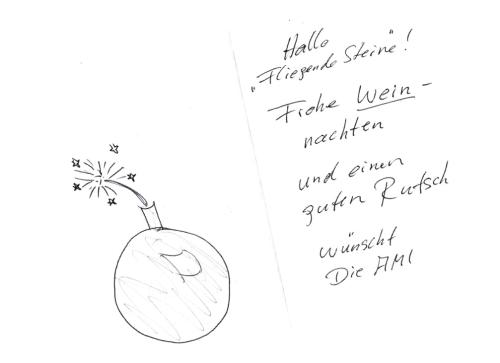 Hallo
"Fliegende Steine"!
Frohe Wein-
nachten
und einen
guten Rutsch
wünscht
Die AMI